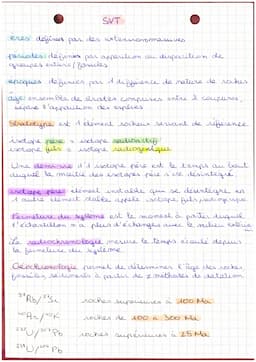 SVT
eres définies par des extensions massives
périodes définies par apparition ou disparition de
groupes entiers / fossiles
epoques définies par 1 difference de nature de roches
âge: ensemble de strates comprises entre 2 coupures,
repère l'apparition des espèces
Stratotype est 1 element rocheux servant de référence
isotope père = isotope radioactif
isotope fils = isotope radiogénique
Une demi vie d'1 isotope père est le temps au bout
duquel la moitié des isotopes père s'est désintégré
isotope père element instable qui se desintegre en
1 autre element stable appelé isotope fils radiogénique
Fermeture du système est le moment à partir duquel
l'échantillon n'a plus d'échanges avec le milieu extérieur
La radiochronologie mesure le temps écoulé depuis
la fermeture du système
Géochronologie permet de déterminer l'âge des roches
fossiles sédiments à partir de 2 méthodes de datation
Rb/Sr roches supérieures à 100 Ma
Ar/K roches de 100 à 300 Ma
U/Pb roches supérieures à 25 Ma
U/Pb